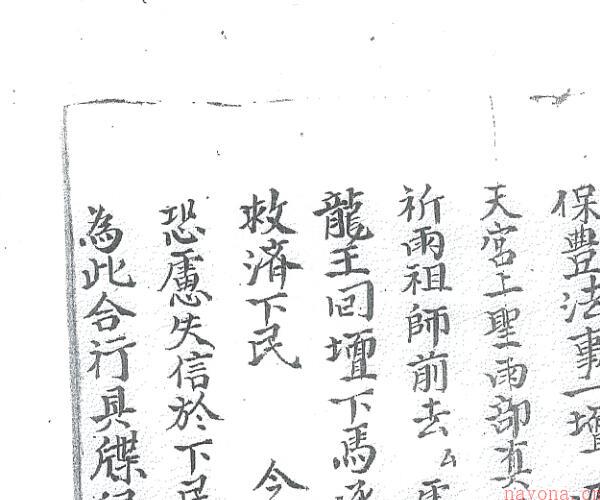 保豐法事一壇
天宮上聖雨部真
祈雨祖師前去厶
龍王回壇下馬
救濟下民 今
恐慮失信於下民
為此合行具牒
nayona.cn